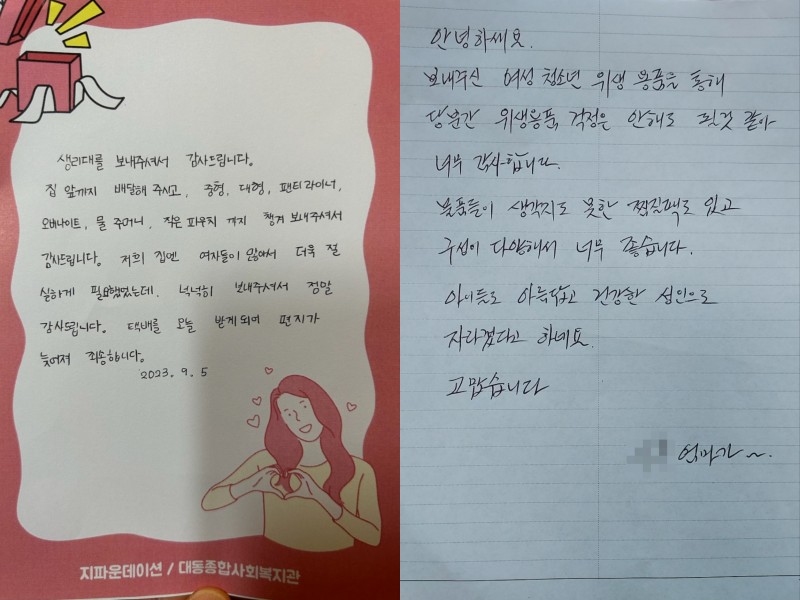 생리대를 보내주셔서 감사드립니다.
집 앞까지 배달해 주시고, 중형, 대형, 팬티라이너,
오버나이트, 물 주머니, 작은 파우치 까지 챙겨 보내주셔서
감사드립니다. 저희 집엔 여자들이 많아서 더욱 절
실하게 필요했었는데, 넉넉히 보내주셔서 정말
감사드립니다. 택배를 오늘 받게되어 편지가
늦어져 죄송합니다.
2023. 9. 5
지파운데이션 / 대동종합사회복지관
안녕하세요.
보내주신 여성 청소년 위생 용품을 통해
당분간 위생용품 걱정은 안해도 될것 같아
너무 감사합니다.
물품들이 생각지도 못한 찜질팩도 있고
구성이 다양해서 너무 좋습니다.
아이들도 아름답고 건강한 성인으로
자라겠다고 하네요.
고맙습니다
엄마가~.